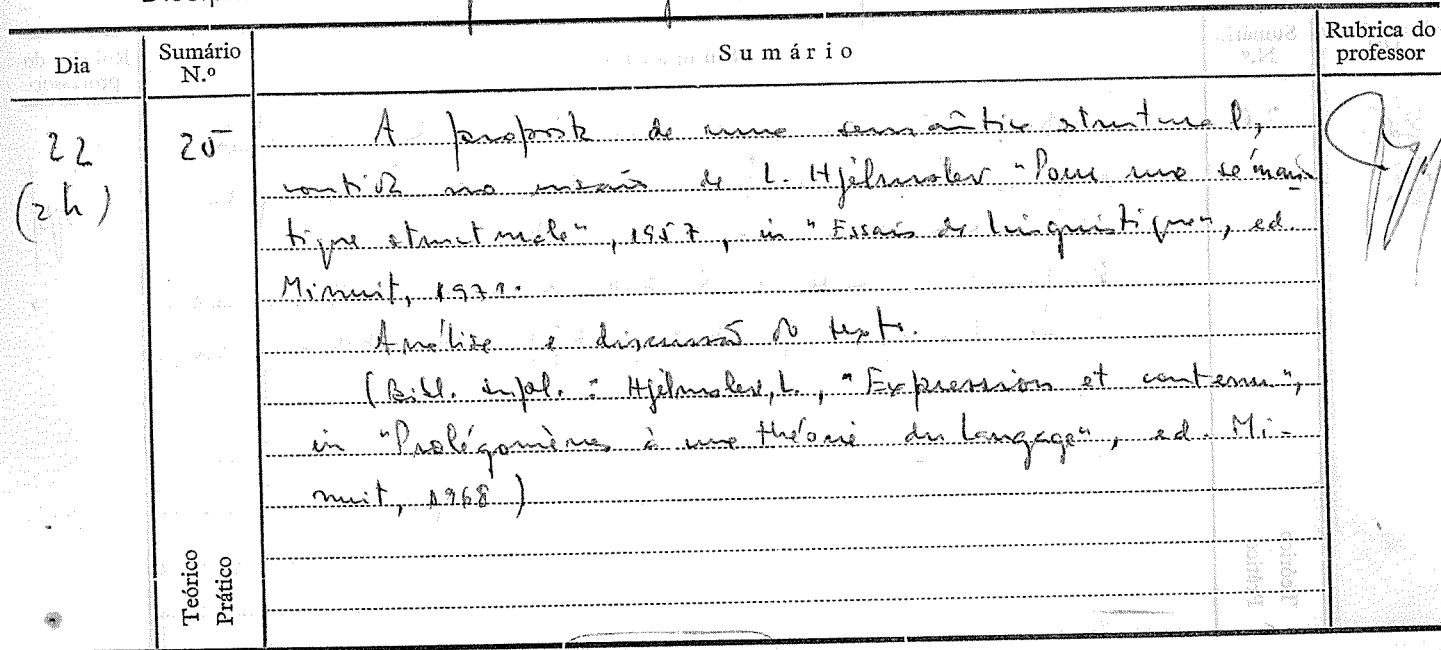 Dia
Sumário N.º
Sumário
Rubrica do professor
22
(2 h)
20
A proposta de uma semântica structural,
contida no ensaio de L. Hjelmslev "Pour une séman-
tique structurale", 1957, in "Essais de linguistique", ed.
Minuit, 1971.
Análise e discussão do texto.
(Bibl. supl. : Hjelmslev, L., "Expression et contenu",
in "Prolégomènes à une théorie du langage", ed. Mi-
nuit, 1968)
Teórico
Prático